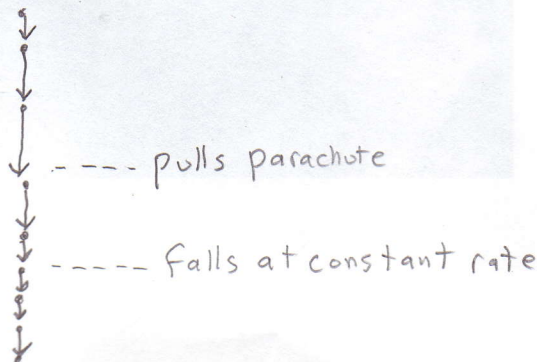 pulls parachute
falls at constant rate